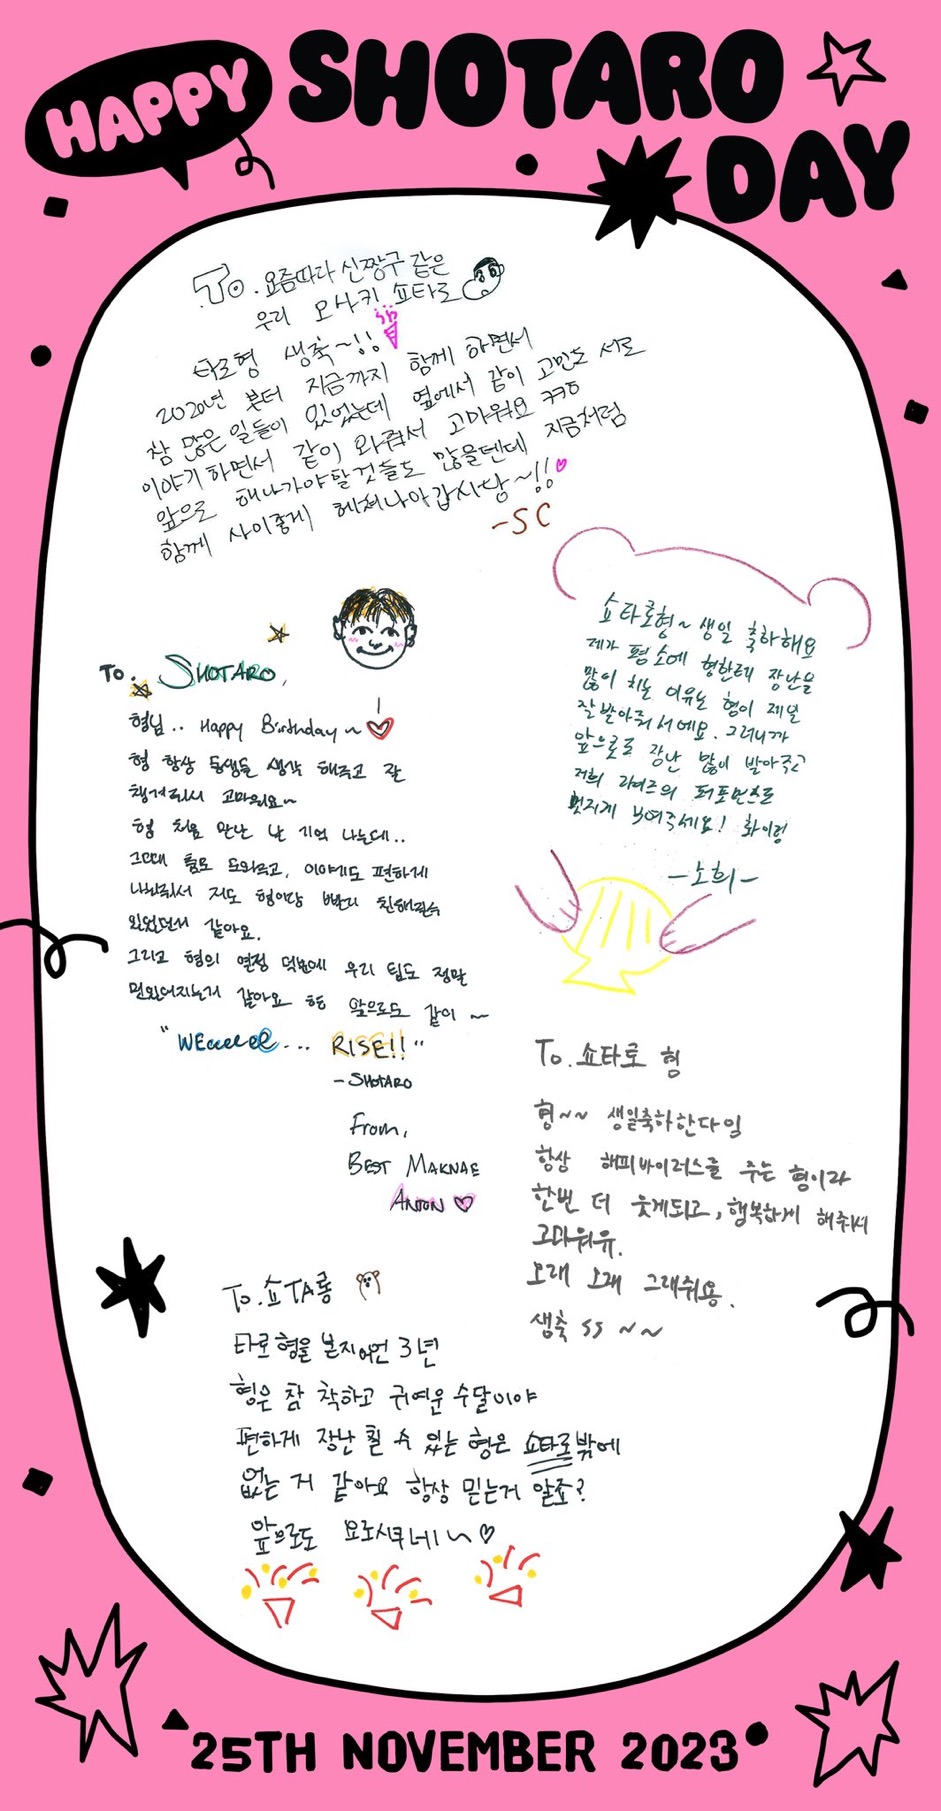 HAPPY
SHOTARO
DAY
To. 요즘따라 신짱구 같은
우리 오사키 쇼타로
타로형 생축~!!
2020년 부터 지금까지 함께 하면서
참 많은 일들이 있었는데 옆에서 같이 고민도 서로
이야기 하면서 같이 와줘서 고마워요 ㅋㅋㅎ
앞으로 해나가야할것들도 많을텐데 지금처럼
함께 사이좋게 헤쳐나아갑시당~!!♡
-SC
쇼타로형~ 생일 축하해요
제가 평소에 형한테 장난을
많이 치는 이유는 형이 제일
잘 받아줘서에요. 그러니까
앞으로도 장난 많이 받아주고
저희 라이즈의 퍼포먼스도
멋지게 보여주세요! 화이팅
-소희-
To. SHOTARO,
형님.. Happy Birthday~♡
형 항상 동생들 생각 해주고 잘
챙겨줘서 고마워요~
형 처음 만난 날 기억 나는데..
그때 춤도 도와주고, 이야기도 편하게
나눠줘서 저도 형이랑 빨리 친해질수
있었던거 같아요.
그리고 형의 열정 덕분에 우리 팀도 정말
멋있어지는거 같아요 형 앞으로도 같이 ~
"WEeeeee... RISE!!"
- SHOTARO
From,
BEST MAKNAE
ANTON ♡
To. 쇼타로 형
형~~ 생일축하한다잉
항상 해피바이러스를 주는 형이라
한번 더 웃게되고, 행복하게 해줘서
고마워유.
오래 오래 그래줘용.
생축 ss ~~
To. 쇼TA롱
타로형을 본지어언 3년
형은 참 착하고 귀여운 수달이야
편하게 장난 칠 수 있는 형은 쇼타로밖에
없는 거 같아요 항상 믿는거 알죠?
앞으로도 요로시쿠네~♡
25TH NOVEMBER 2023